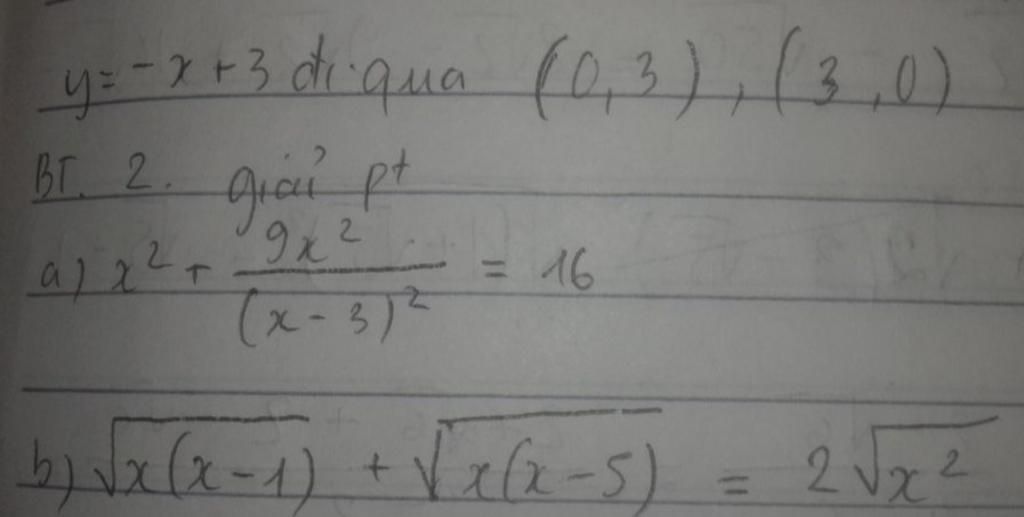 y = -x + 3 đi qua (0,3), (3,0)
BT. 2. giải pt
a) x² + 9x²/(x - 3)² = 16
b) √(x(x-1)) + √(x(x-5)) = 2√(x²)